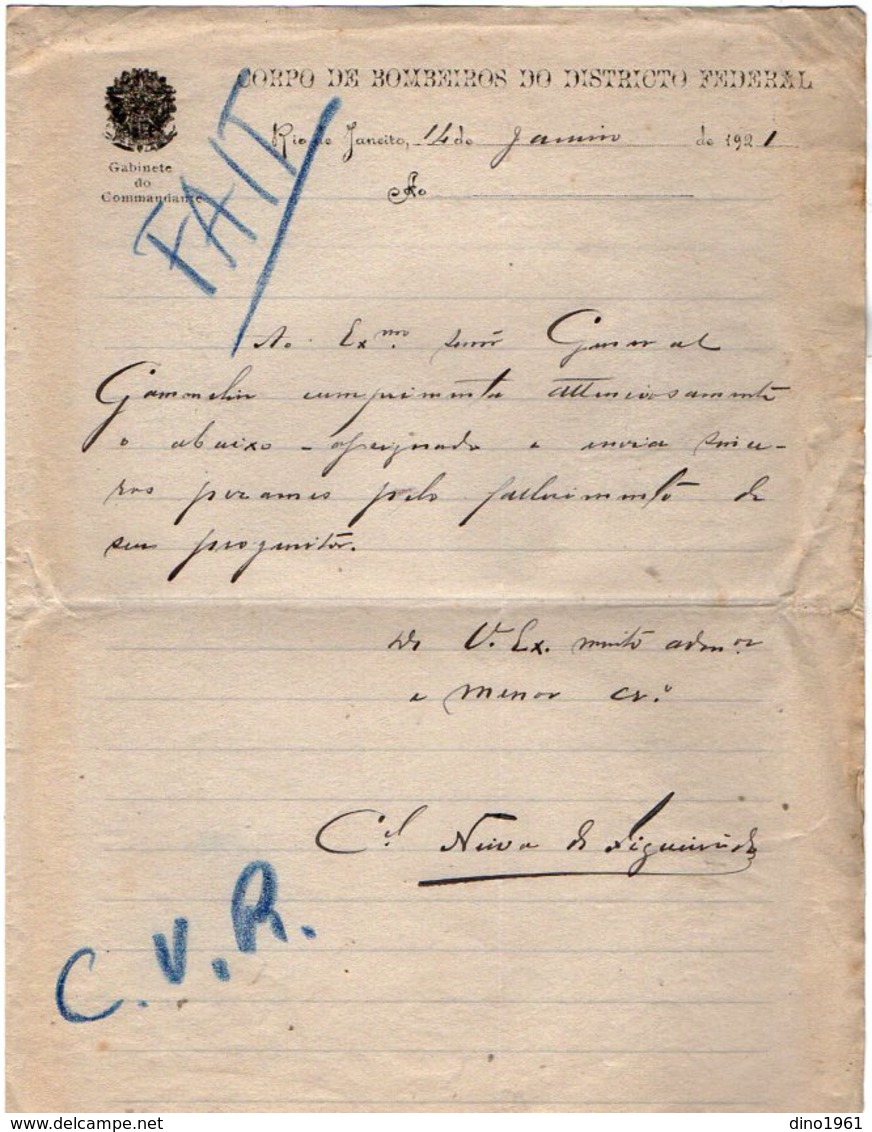 CORPO DE BOMBEIROS DO DISTRICTO FEDERAL
Rio de Janeiro, 14 de Janeiro de 1921
Gabinete
do
Commandante
Ao
FAIT
Ao Exmo. Senr General
Gammelin cumprimenta attenciosamente
o abaixo-assignado e envia since-
ros pezames pelo fallecimento de
seu progenitor.
De V. Ex. muito admor
e menor cro.
Cel Neiva de Figueirêdo
C.V.R.
delcampe.net
dino1961